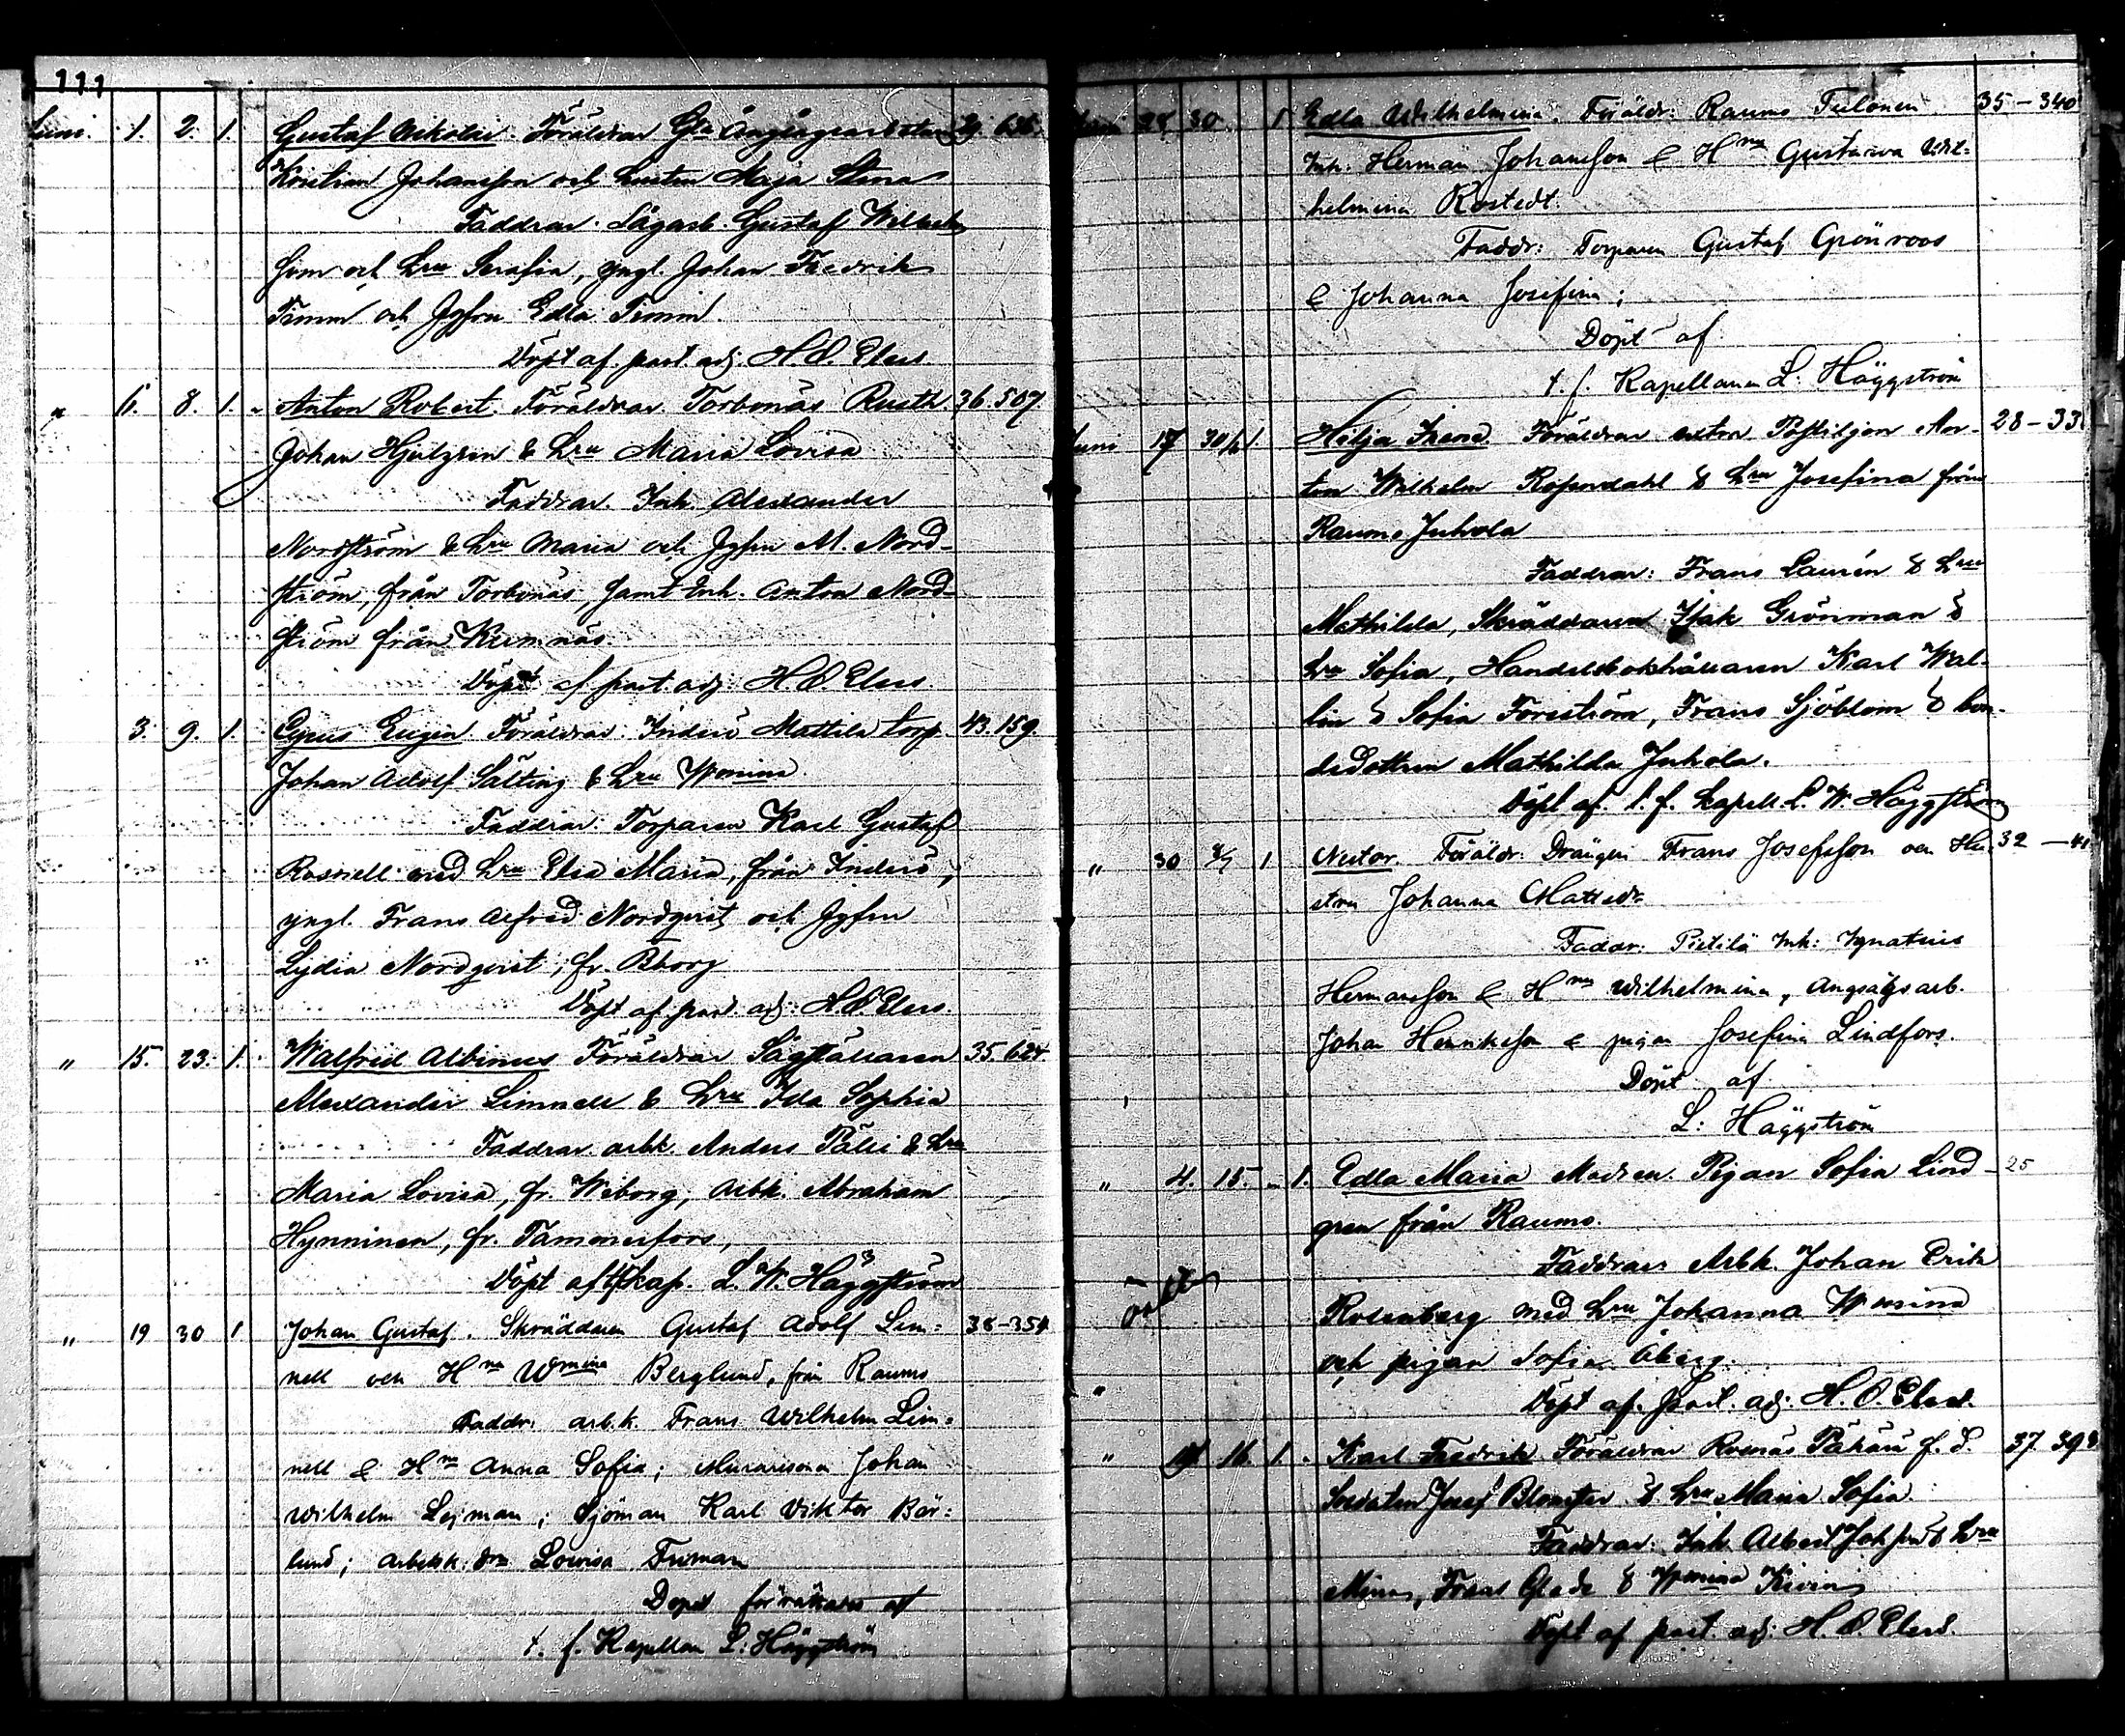 111
Juni. 1. 2. 1. Gustaf Nikolai. Föräldrar Gla Ångsågsarbetaren 29. 636.
Kristian Johansson och Hustru Maja Stina
Faddrar. Sågarb. Gustaf
son och Hru Serafia, yngl. Johan Fredrik
Timm och Jgfru Edla Timm.
Döpt af past. adj. H. O. Elers
" 6. 8. 1. Anton Robert. Föräldrar Torbonäs Rusth. 36. 507.
Johan & Hru Maria Lovisa
Faddrar. Inh. Alexander
Nordström & Hru Maria och Jgfru M. Nord-
ström, från Torbonäs, samt Inh. Anton Nord-
ström från
Döpt af past. adj. H. O. Elers
3. 9. 1. Cyrus Eugen Föräldrar. Inderö Mattila torp. 43. 159.
Johan Adolf Sälting & Hru Wmina.
Faddrar: Torparen Karl Gustaf
Rosnell med Hru Elsa Maria, från Inderö,
yngl. Frans Alfred Nordqvist och Jgfru
Lydia Nordqvist, fr. Bborg
Döpt af past. adj. H. O. Elers.
" 15. 23. 1. Walfrid Albinus Föräldrar Sågställaren 35. 624.
Alexander Limnell & Hru Ida Sophia
Faddrar arbk. Anders Pälsi & Hru
Maria Lovisa, fr. Wiborg, Arbk. Abraham
Hynninen, fr. Tammerfors,
Döpt af tf kap. L. W. Häggström
" 19 30 1 Johan Gustaf. Skräddaren Gustaf Adolf Lin= 38-354
nell och Hna Wmina Berglund, från Raumo
Faddr: arb.k. Frans Wilhelm Lin=
nell & Hna Anna Sofia; Johan
Wilhelm Lejman; Sjöman Karl Viktor Bär=
lund; arbetsk. dra Lovisa Friman
Döpt af
t. f. Kapellan L. Häggström
Juni 28 30 1 Edla Wilhelmina. Föräldr: Raumo Tulonen 35-340
Inh. Herman Johansson & Hna Gustava Wil-
helmina Rostedt.
Faddr: Torparen Gustaf Grönroos
& Johanna Josefina;
Döpt af
t. f. Kapellanen L. Häggström
Juni 17 30/6 1. Hilja Irene. Föräldrar extra Postiljon An- 28-33
ton Wilhelm Rosendahl & Hru Josefina från
Raumo Juhola
Faddrar: Frans Laurén & Hru
Mathilda, Skräddaren Isak Grönman &
Hru Sofia, Handelsbokhållaren Karl Wal-
lin & Sofia Forsström, Frans Sjöblom & bon-
dedottren Mathilda Juhola.
Döpt af t. f. kapell. L. W. Häggström
" 30 1 Nestor. Föräldr: Drängen Frans Josefsson och Hu- 32 - 41
stru Johanna Mattsdr
Faddr: Pietilä Inh: Ignatius
Hermansson & Hna Wilhelmina, Ångsågsarb.
Johan Henriksson & pigan Josefina Lindfors.
Döpt af
L: Häggström
" 4. 15. " 1. Edla Maria Modren. Pigan Sofia Lind- 25
gren från Raumo.
Faddrar Arbk. Johan Erik
Rosenberg med Hru Johanna Wmina
och pigan Sofia Åberg.
" Döpt af. past. adj. H. O. Elers.
" 16. 1. Karl Fredrik Föräldrar f. d. 37. 393
Soldaten Josef Blomster & Hru Maria Sofia.
Faddrar: Inh. Albert Johsson & Hru
Mina, Frans & Wmina
Döpt af past. adj. H. O. Elers.